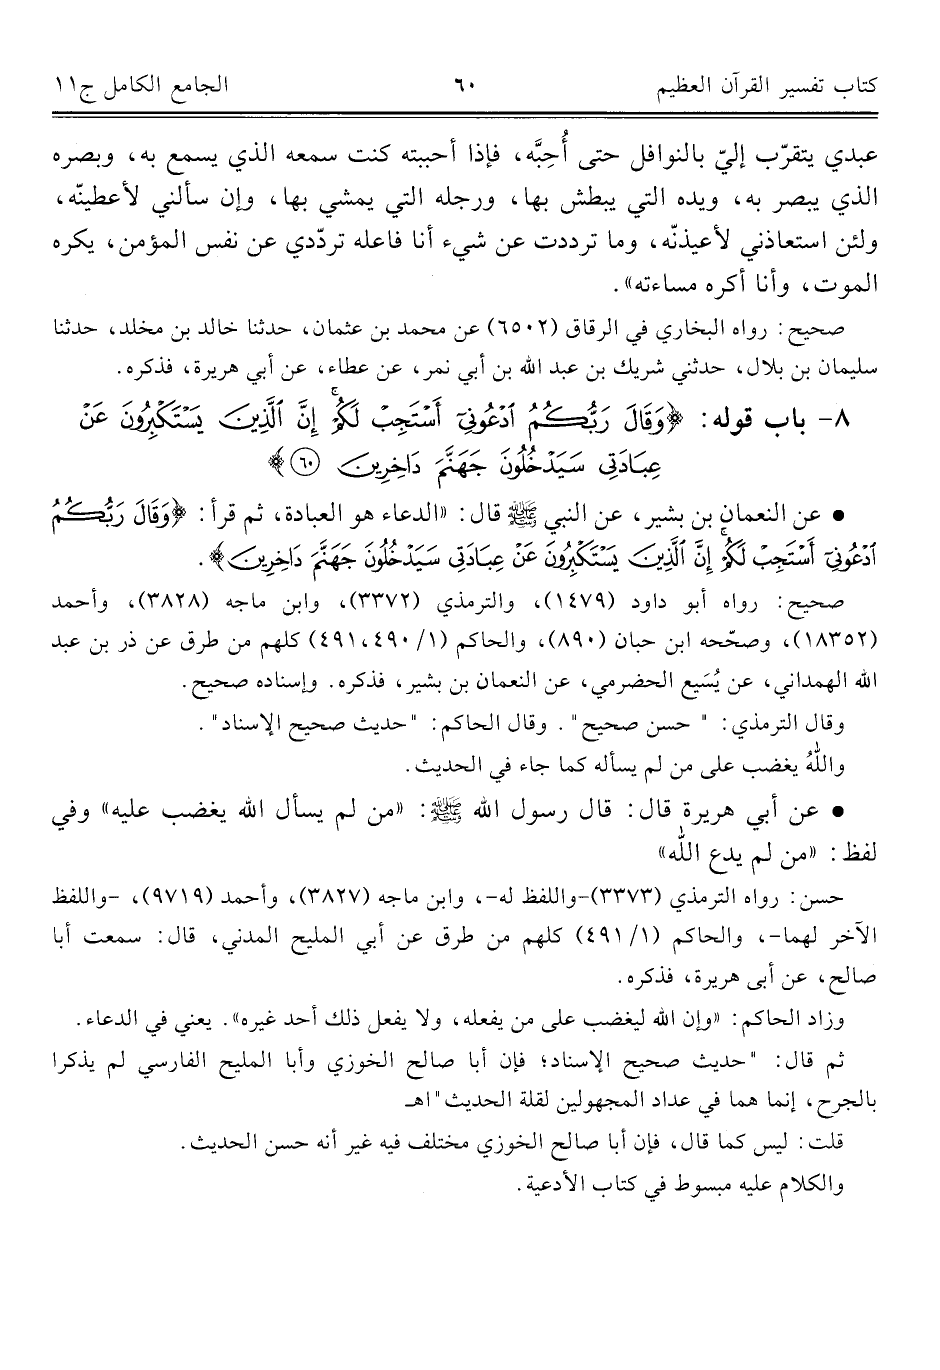 كتاب تفسير القرآن العظيم ٦٠ الجامع الكامل ج١١
عبدي يتقرّب إليّ بالنوافل حتى أُحِبَّه، فإذا أحببته كنت سمعه الذي يسمع به، وبصره
الذي يبصر به، ويده التي يبطش بها، ورجله التي يمشي بها، وإن سألني لأعطينّه،
ولئن استعاذني لأعيذنّه، وما ترددت عن شيء أنا فاعله تردّدي عن نفس المؤمن، يكره
الموت، وأنا أكره مساءته».
صحيح: رواه البخاري في الرقاق (٦٥٠٢) عن محمد بن عثمان، حدثنا خالد بن مخلد، حدثنا
سليمان بن بلال، حدثني شريك بن عبد الله بن أبي نمر، عن عطاء، عن أبي هريرة، فذكره.
٨- باب قوله: ﴿وَقَالَ رَبُّكُمُ ٱدْعُونِيٓ أَسْتَجِبْ لَكُمْ ۚ إِنَّ ٱلَّذِينَ يَسْتَكْبِرُونَ عَنْ
عِبَادَتِي سَيَدْخُلُونَ جَهَنَّمَ دَاخِرِينَ ٦٠﴾
• عن النعمان بن بشير، عن النبي ﷺ قال: «الدعاء هو العبادة، ثم قرأ: ﴿وَقَالَ رَبُّكُمُ
ٱدْعُونِيٓ أَسْتَجِبْ لَكُمْ ۚ إِنَّ ٱلَّذِينَ يَسْتَكْبِرُونَ عَنْ عِبَادَتِي سَيَدْخُلُونَ جَهَنَّمَ دَاخِرِينَ﴾.
صحيح: رواه أبو داود (١٤٧٩)، والترمذي (٣٣٧٢)، وابن ماجه (٣٨٢٨)، وأحمد
(١٨٣٥٢)، وصحّحه ابن حبان (٨٩٠)، والحاكم (١/ ٤٩٠،٤٩١) كلهم من طرق عن ذر بن عبد
الله الهمداني، عن يُسَيع الحضرمي، عن النعمان بن بشير، فذكره. وإسناده صحيح.
وقال الترمذي: " حسن صحيح". وقال الحاكم: "حديث صحيح الإسناد".
واللهُ يغضب على من لم يسأله كما جاء في الحديث.
• عن أبي هريرة قال: قال رسول الله ﷺ: «من لم يسأل الله يغضب عليه» وفي
لفظ: «من لم يدع الله»
حسن: رواه الترمذي (٣٣٧٣)-واللفظ له-، وابن ماجه (٣٨٢٧)، وأحمد (٩٧١٩)، -واللفظ
الآخر لهما-، والحاكم (١/ ٤٩١) كلهم من طرق عن أبي المليح المدني، قال: سمعت أبا
صالح، عن أبى هريرة، فذكره.
وزاد الحاكم: «وإن الله ليغضب على من يفعله، ولا يفعل ذلك أحد غيره». يعني في الدعاء.
ثم قال: "حديث صحيح الإسناد؛ فإن أبا صالح الخوزي وأبا المليح الفارسي لم يذكرا
بالجرح، إنما هما في عداد المجهولين لقلة الحديث"اهـ
قلت: ليس كما قال، فإن أبا صالح الخوزي مختلف فيه غير أنه حسن الحديث.
والكلام عليه مبسوط في كتاب الأدعية.